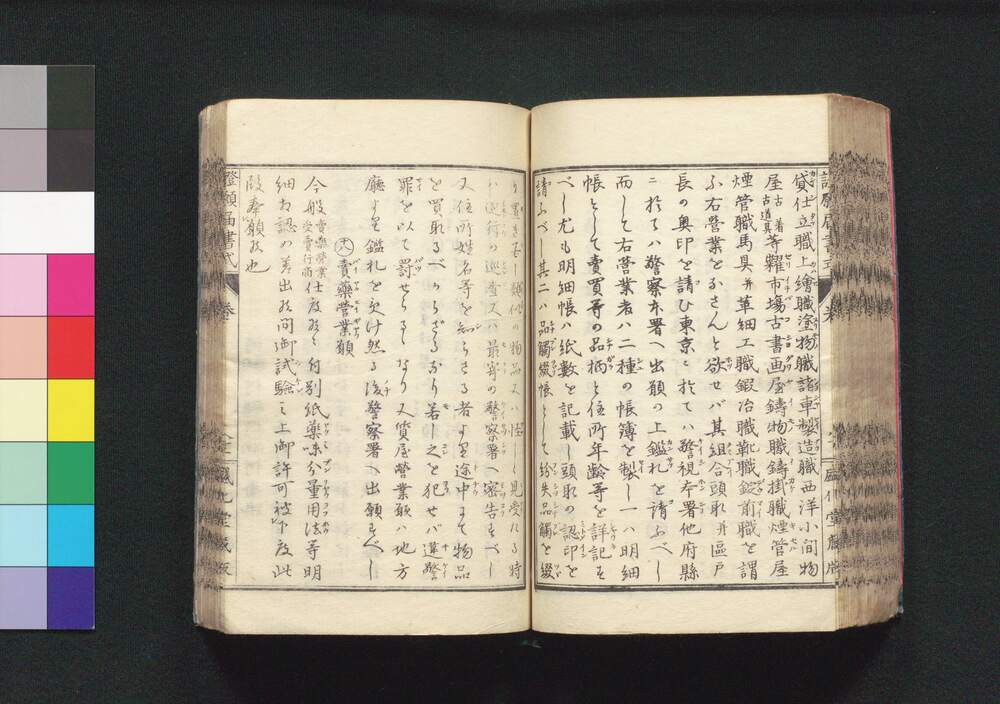 貸仕立職上繪職塗物職諸車製造職西洋小間物
屋古着古道具等糶市塲古書画屋鋳物職鋳掛職煙管屋
煙管職馬具并革細工職鍜冶職靴職錠前職を謂
ふ右營業をなさんと欲せバ其組合頭取并區戸
長の奥印を請ひ東京ニ於てハ警視本署他府縣
ニ於てハ警察本署へ出願の上鑑札を請ふべし
而して右營業者ハ二種の帳簿を製し一ハ明細
帳として賣買等の品柄と住所年齢等を詳記す
べし尤も明細帳ハ紙数を記載し頭取の認印を
請ふべし其二ハ品觸綴帳として紛失品觸を綴
り置き若し類似の物品又ハ怪しと見受ける時
ハ巡行の巡査又ハ最寄の警察署へ密告すべし
又住所姓名等を知らざる者より途中にて物品
を買取るべからざるなり若し之を犯せバ違警
罪を以て罰せらるゝなり又質屋營業願ハ地方
廳より鑑札を受け然る後警察署へ出願すべし
賣藥營業願
今般賣藥營業受賣行商仕度候ニ付別紙藥味分量用法等明
細相認め差出候間御試驗之上御許可被下度此
段奉願候也
證願届書式
卷
盛化堂藏版